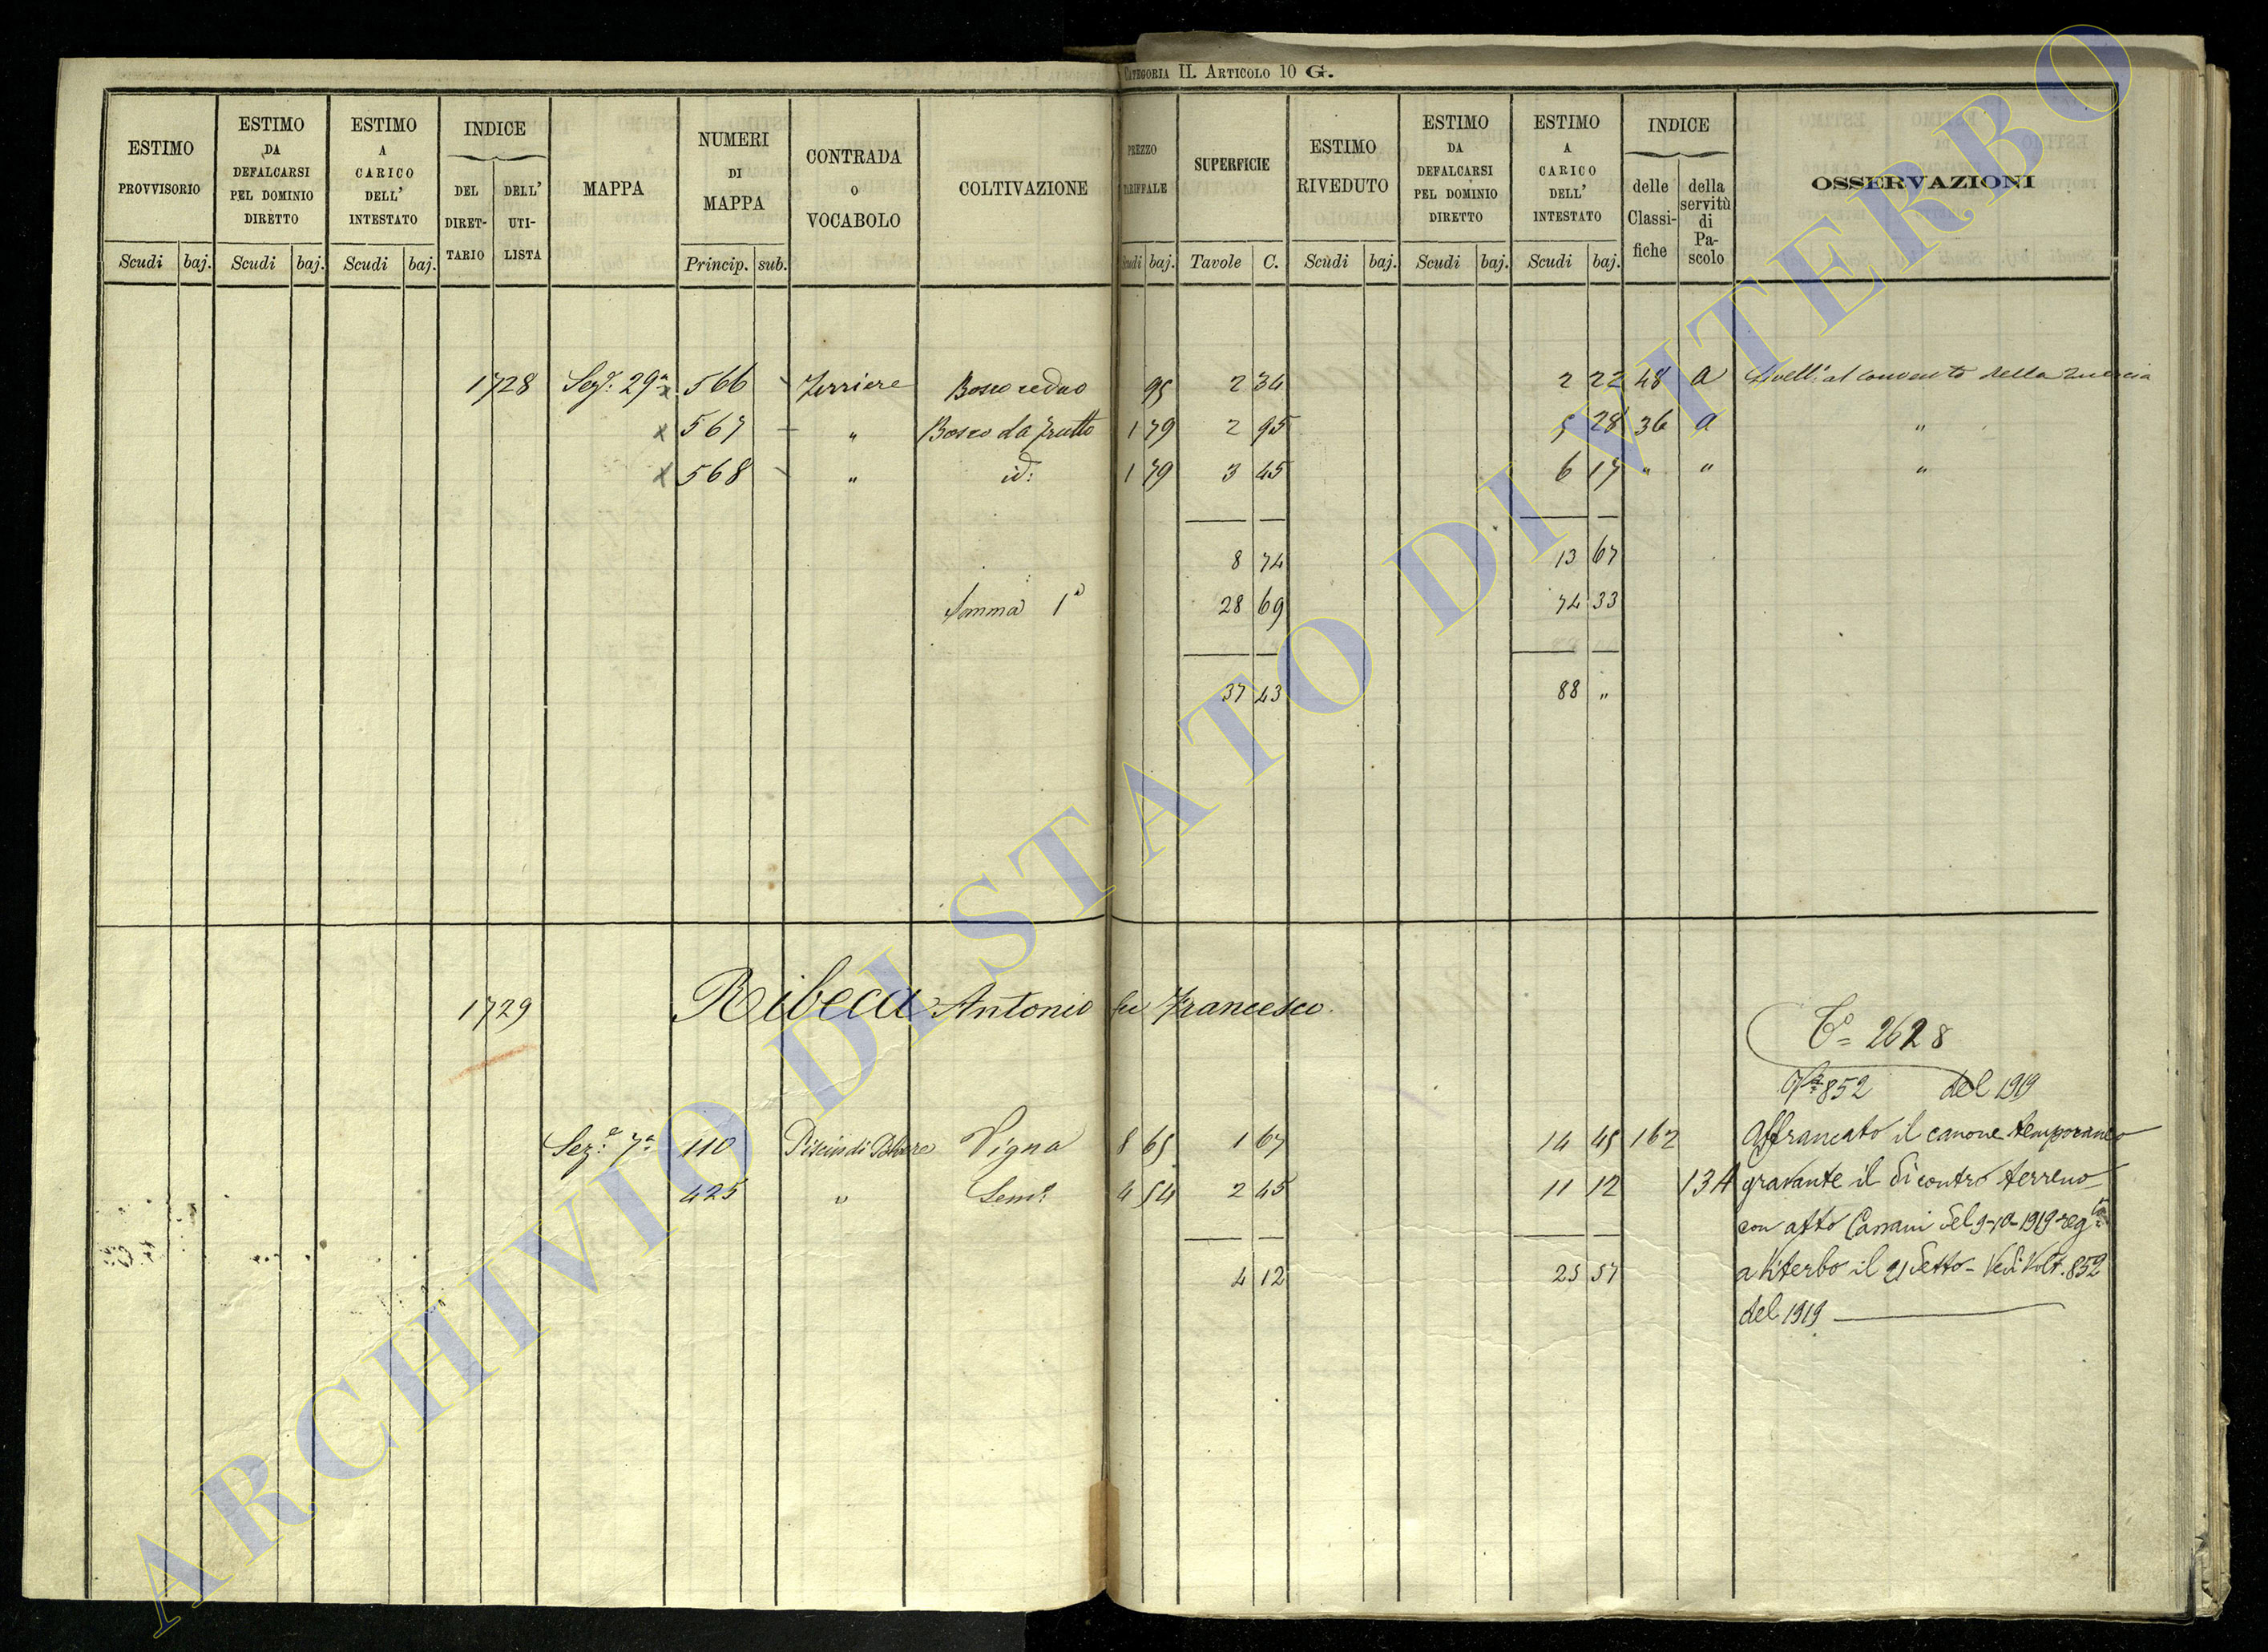 CATEGORIA II. ARTICOLO 10 G.
ESTIMO PROVVISORIO Scudi baj.
ESTIMO DA DEFALCARSI PEL DOMINIO DIRETTO Scudi baj.
ESTIMO A CARICO DELL' INTESTATO Scudi baj.
INDICE DEL DIRETTARIO DELL' UTILISTA
MAPPA
NUMERI DI MAPPA Princip. sub.
CONTRADA O VOCABOLO
COLTIVAZIONE
PREZZO TARIFFALE Scudi baj.
SUPERFICIE Tavole C.
ESTIMO RIVEDUTO Scudi baj.
ESTIMO DA DEFALCARSI PEL DOMINIO DIRETTO Scudi baj.
ESTIMO A CARICO DELL' INTESTATO Scudi baj.
INDICE delle Classifiche della servitù di Pascolo
OSSERVAZIONI
1728 Sez.e 29a x 566 Ferriere Bosco ceduo 95 2 34 2 22 48 a Livell.o al convento della Quercia
x 567 " Bosco da frutto 1 79 2 95 5 28 36 a "
x 568 " id: 1 79 3 45 6 17 " " "
8 74 13 67
Somma 1a 28 69 74 33
37 43 88 "
1729 Ribeca Antonio fu Francesco
To= 2628
852 del 1919
Sez.e 7a 110 Vigna 8 65 1 67 14 45 162 Affrancato il canone temporaneo
425 " Sem.o 4 54 2 45 11 12 134 gravante il dicontro terreno
con atto del 9-10-1919 reg.to
4 12 25 57 a Viterbo il 21 detto - Vedi Volt. 852
del 1919
ARCHIVIO DI STATO DI VITERBO